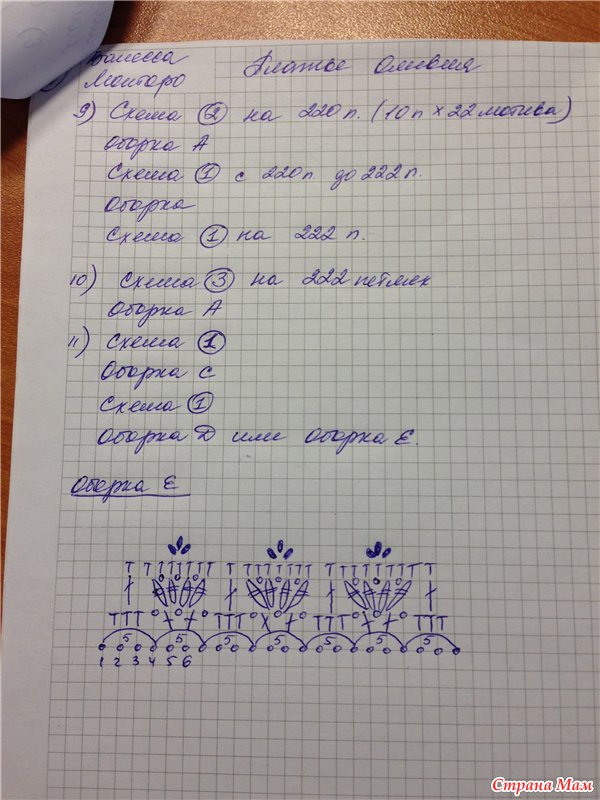 Ванесса Платье Оливия
Монторо
9) Схема 2 на 220 п. (10 п × 22 мотива)
Оборка А
Схема 1 с 220 п. до 222 п.
Оборка
Схема 1 на 222 п.
10) Схема 3 на 222 петлях
Оборка А
11) Схема 1
Оборка С
Схема 1
Оборка D или оборка Е.
Оборка Е
5 5 5 5 5 5 5
1 2 3 4 5 6
Страна Мам